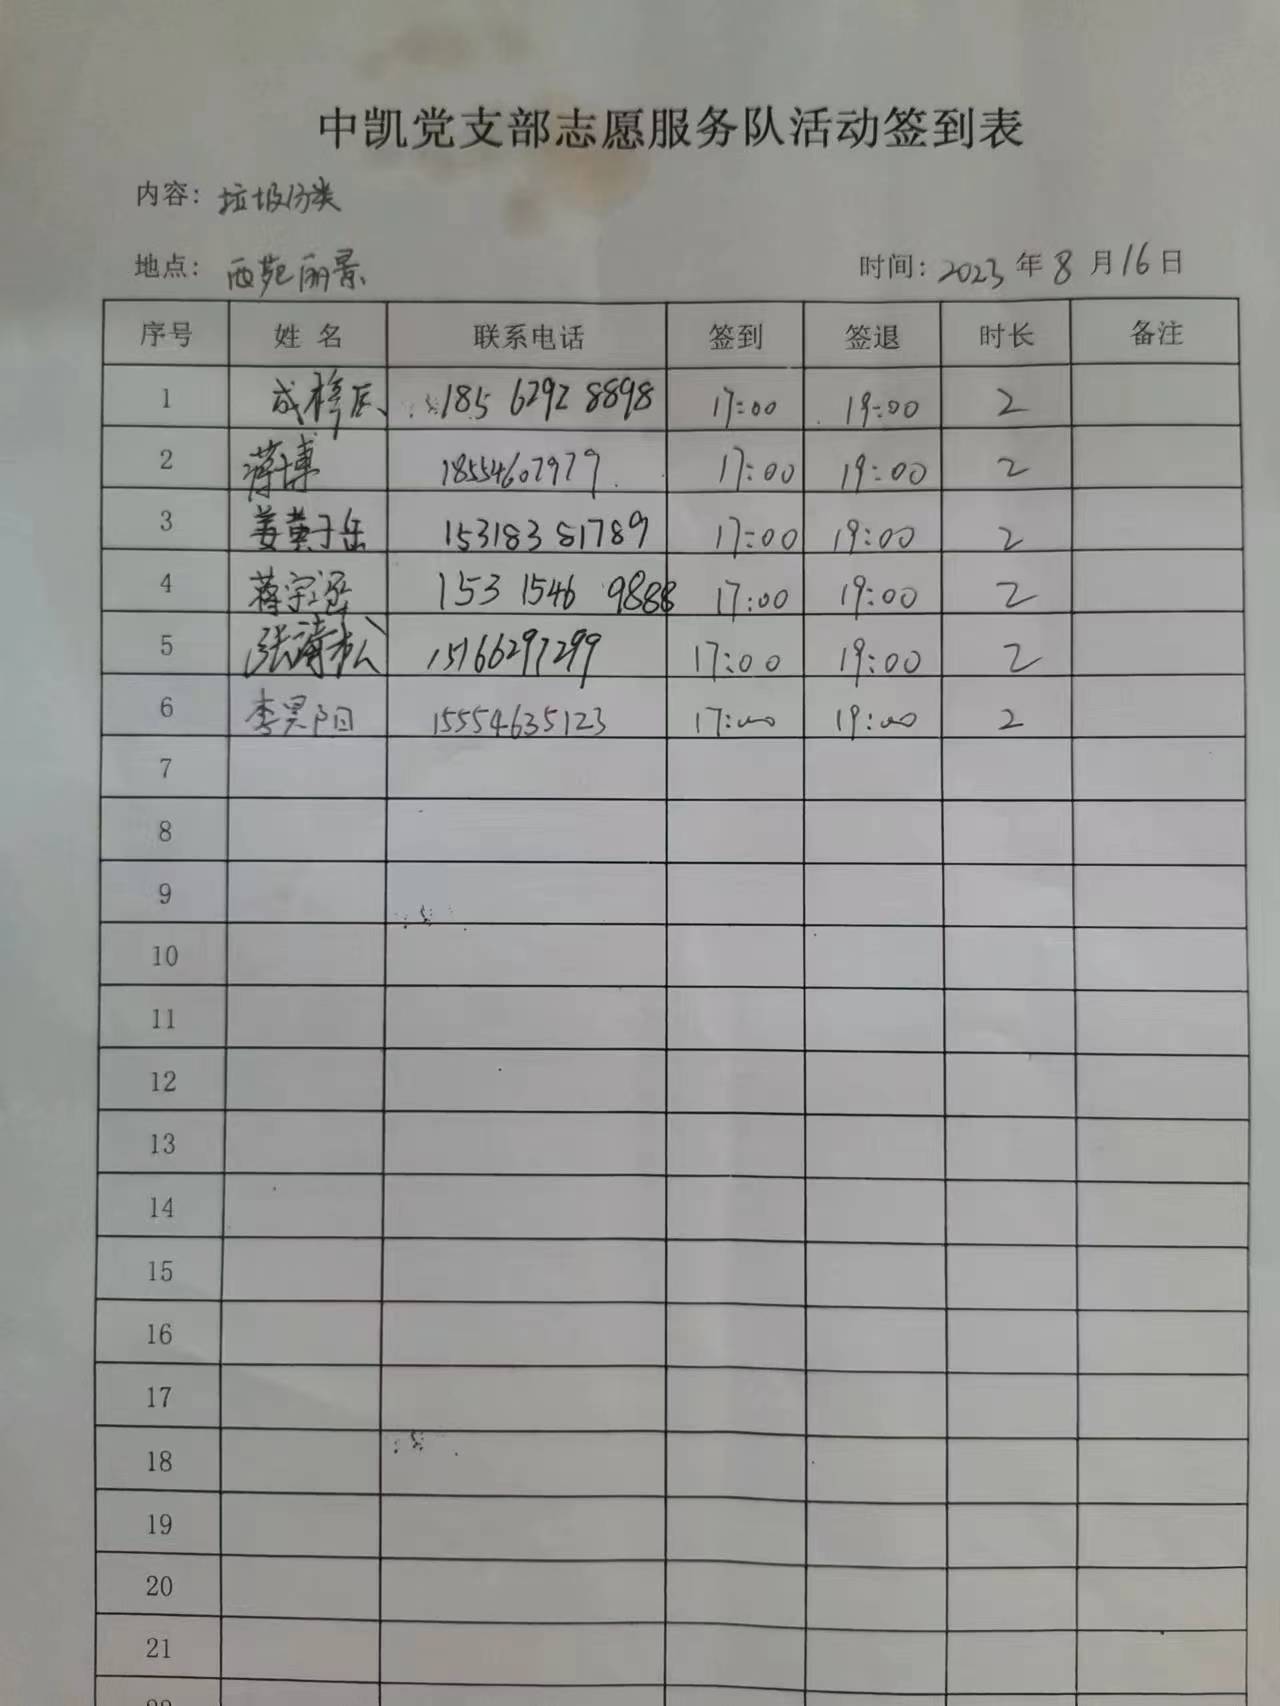 中凯党支部志愿服务队活动签到表
内容：垃圾分类
地点：西苑丽景 时间：2023年8月16日
序号 姓名 联系电话 签到 签退 时长 备注
1 成梓辰 185 6292 8898 17:00 19:00 2
2 蒋博 18554607979 17:00 19:00 2
3 姜黄子岳 15318381789 17:00 19:00 2
4 蒋宇涵 153 1546 9888 17:00 19:00 2
5 张 15166297299 17:00 19:00 2
6 李昊阳 15554635123 17:00 19:00 2
7
8
9
10
11
12
13
14
15
16
17
18
19
20
21